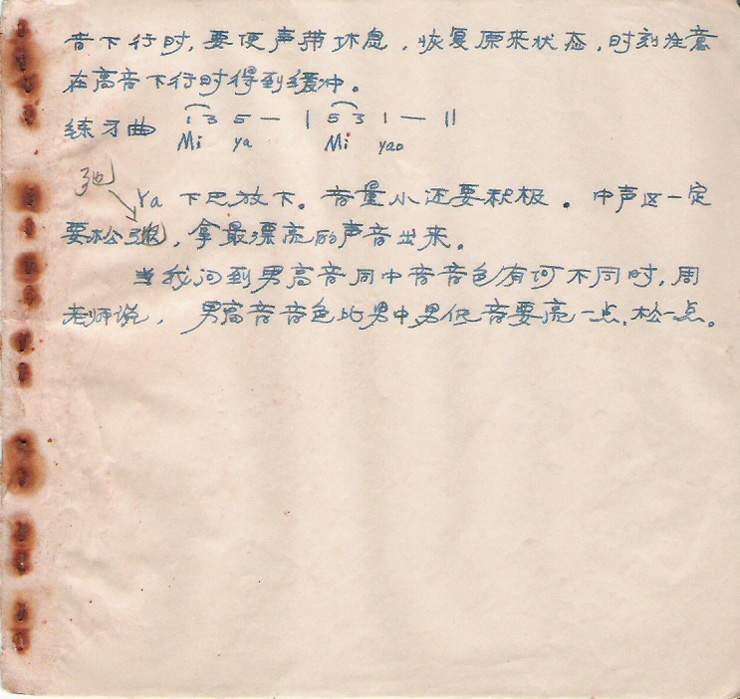 音下行时，要使声带休息，恢复原来状态，时刻注意
在高音下行时得到缓冲。
练习曲 1 3 5 — | 5 3 1 — ||
Mi ya Mi yao
弛
Ya 下巴放下。音量小还要积极。中声区一定
要松弛，拿最漂亮的声音出来。
当我问到男高音同中音音色有何不同时，周
老师说，男高音音色比男中男低音要亮一点，松一点。